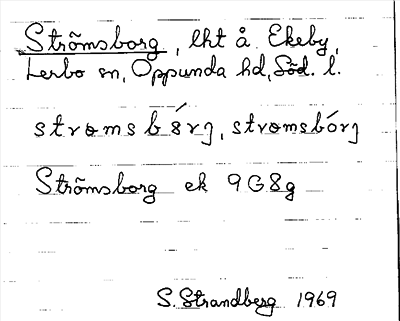 Strömsborg, lht å Ekeby,
Lerbo sn, Oppunda hd, Söd. l.
strɵmsbórj, strɵmsbórj
Strömsborg ek 9G8g
S. Strandberg 1969